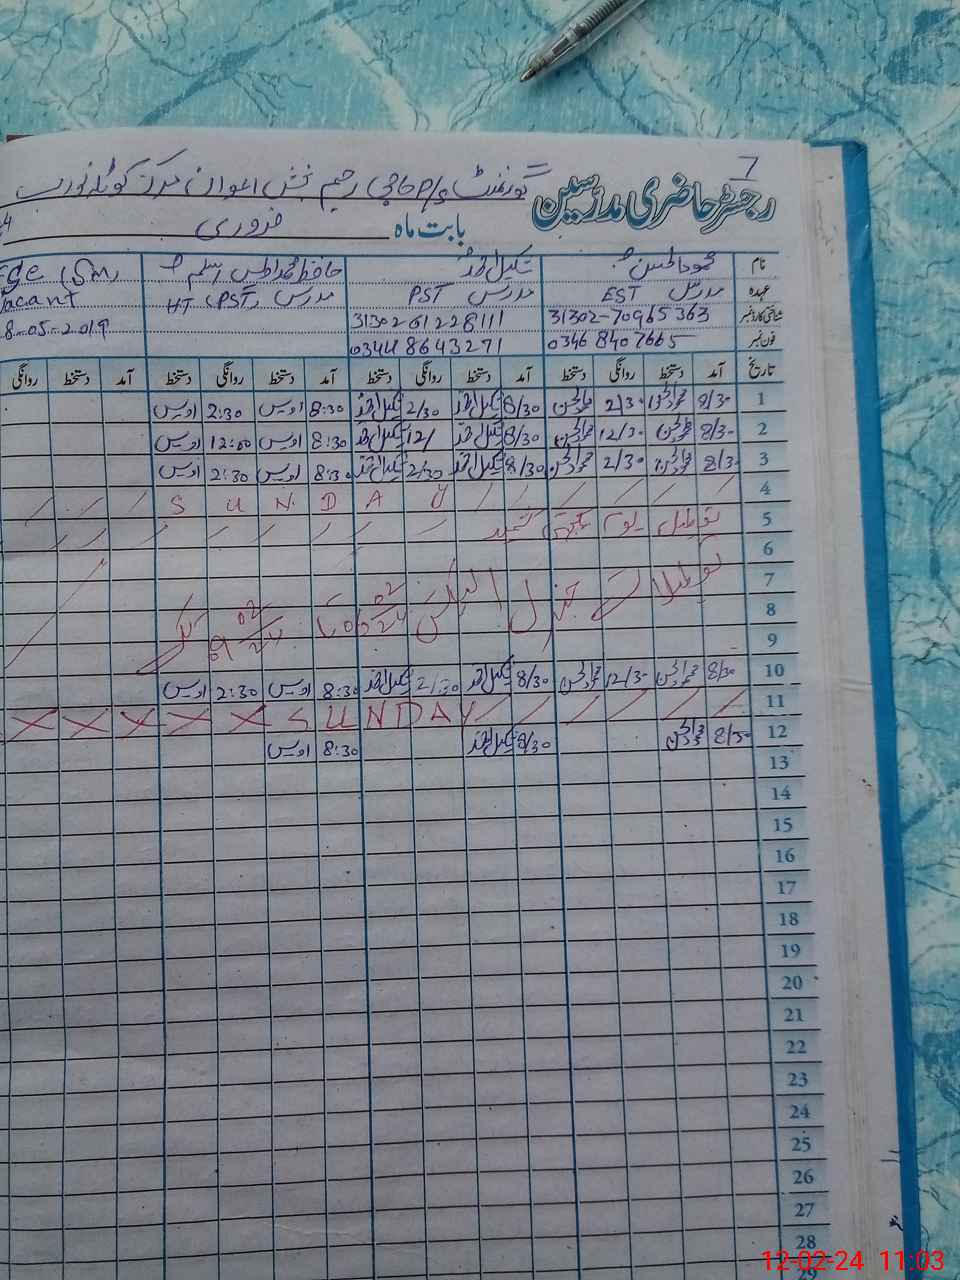 7
رجسٹر حاضری مدرسین گورنمنٹ p/s حاجی رحیم بخش اعوان
بابت ماہ فروری
نام محمود الحسن شکیل احمد حافظ محمد اویس اسلم
عہدہ مدرس EST مدرس PST مدرس HT (PST) Vacant
شناختی کارڈ نمبر 31302-70965363 3130261228111 8-05-2019
فون نمبر 03468407665 03448643271
تاریخ آمد دستخط روانگی دستخط آمد دستخط روانگی دستخط آمد دستخط روانگی دستخط آمد دستخط روانگی
1 8/30 2/30 8/30 شکیل احمد 2/30 شکیل احمد 8:30 اویس 2:30 اویس
2 8/30 12/30 8/30 شکیل احمد 12/ شکیل احمد 8:30 اویس 12:00 اویس
3 8/30 2/30 8/30 شکیل احمد 2/30 شکیل احمد 8:30 اویس 2:30 اویس
4 S U N D A Y
5 تعطیل یوم یکجہتی کشمیر
6
7 تعطیلات جنرل الیکشن
8
9
10 8/30 12/30 8/30 شکیل احمد 2/30 شکیل احمد 8:30 اویس 2:30 اویس
11 SUNDAY
12 8/30 8/30 شکیل احمد 8:30 اویس
13
14
15
16
17
18
19
20
21
22
23
24
25
26
27
28
29
12-02-24 11:03